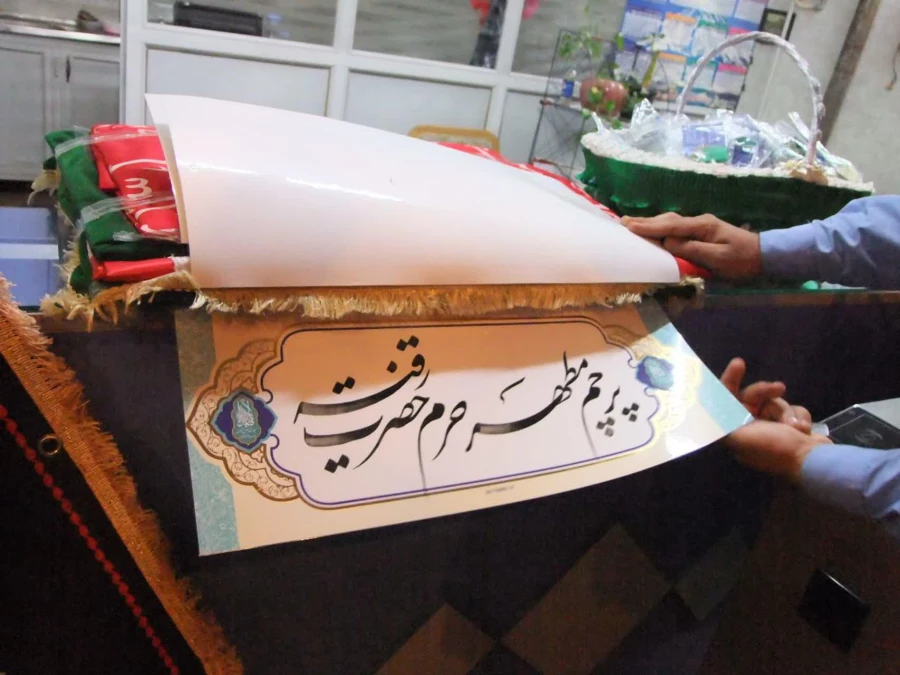 پرچم مطهر حرم حضرت رقیه